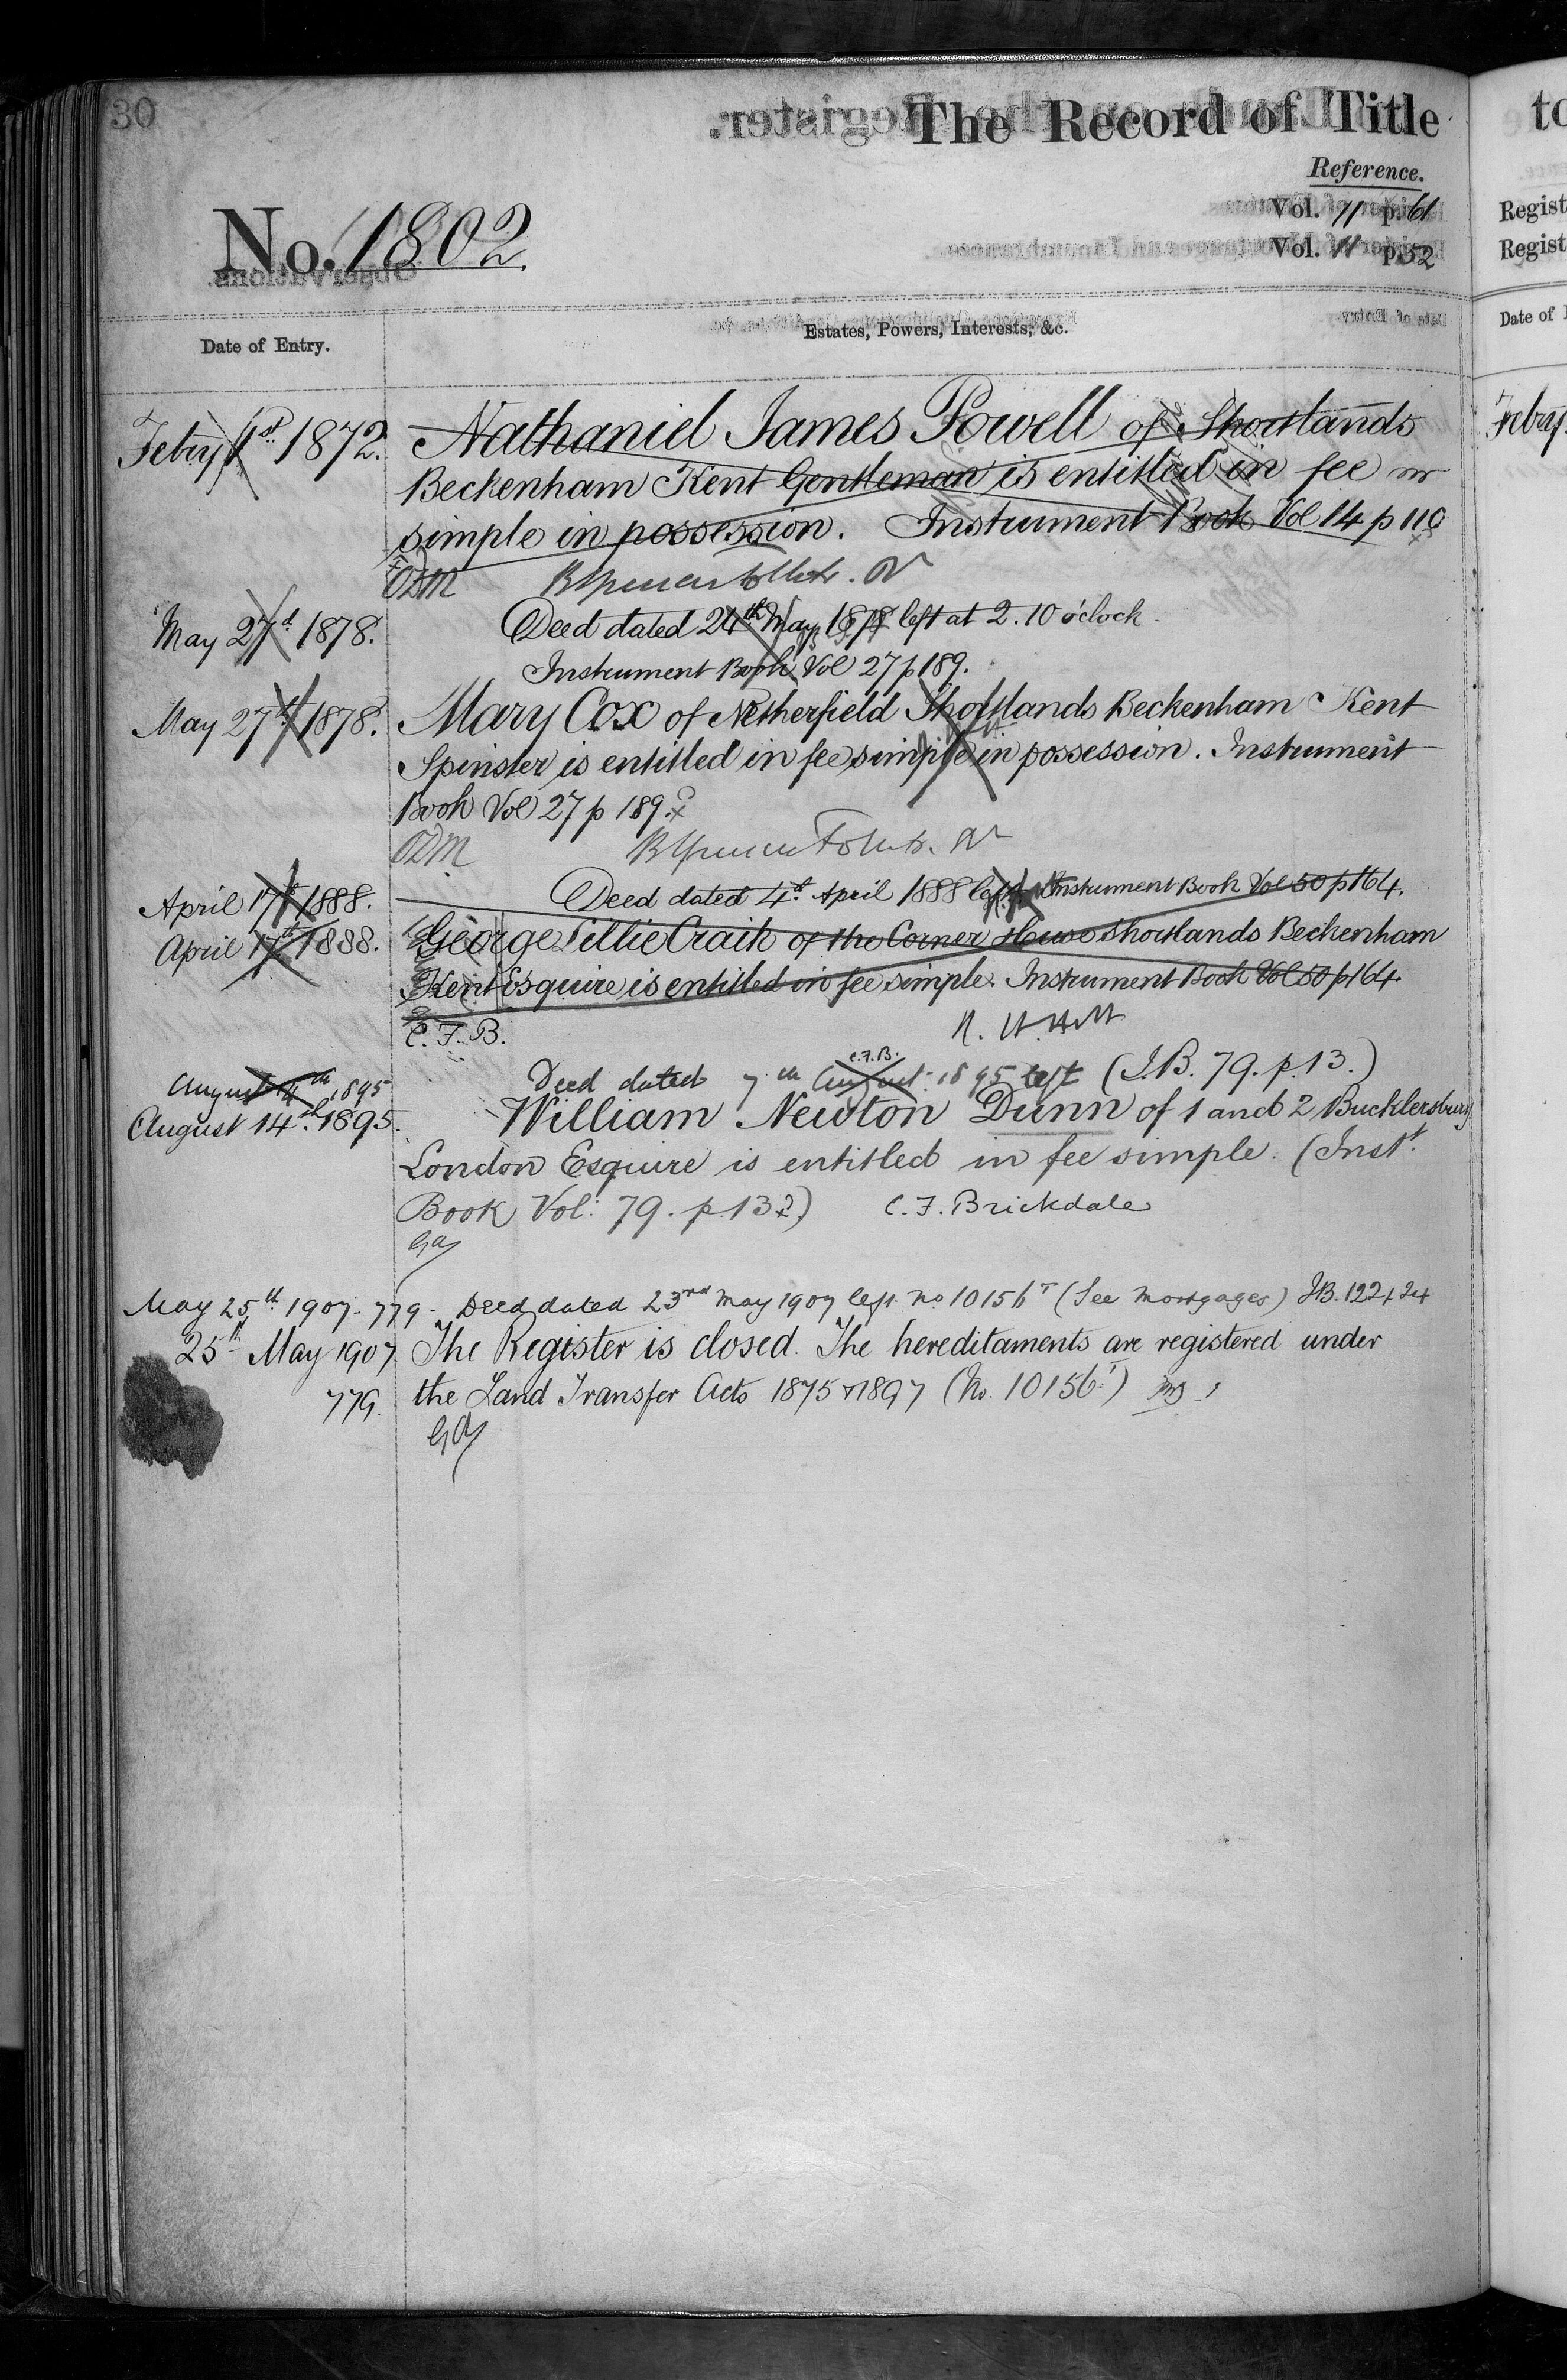 30
The Record of Title
Reference.
Vol. 11 p. 61
Vol. 11 p. 52
No. 1802.
Date of Entry.
Estates, Powers, Interests, &c.
Febry 1st 1872. Nathaniel James Powell of Shortlands
Beckenham Kent Gentleman is entitled in fee
simple in possession. Instrument Book Vol 14 p 110
May 27th 1878. Deed dated 24th May 1878 left at 2.10 o'clock
Instrument Book Vol 27 p 189.
May 27th 1878. Mary Cox of Netherfield Shortlands Beckenham Kent
Spinster is entitled in fee simple in possession. Instrument
Book Vol 27 p 189.
April 17th 1888. Deed dated 4th April 1888 left Instrument Book Vol 50 p 164.
April 17th 1888. George Lillie Craik of the Corner House Shortlands Beckenham
Kent Esquire is entitled in fee simple. Instrument Book Vol 50 p 164.
C. F. B.
C.F.B.
August 14th 1895 Deed dated 7th August 1895 left (I.B. 79. p. 13.)
August 14th 1895. William Newton Dunn of 1 and 2 Bucklersbury
London Esquire is entitled in fee simple. (Inst.t
Book Vol: 79. p. 13) C. F. Brickdale
May 25th 1907. 779. Deed dated 23rd May 1907 left No. 10156T (See Mortgages) I.B. 122
25th May 1907 The Register is closed. The hereditaments are registered under
779. the Land Transfer Acts 1875 & 1897 (No. 10156T)
to
Regist
Regist
Date of
Febry